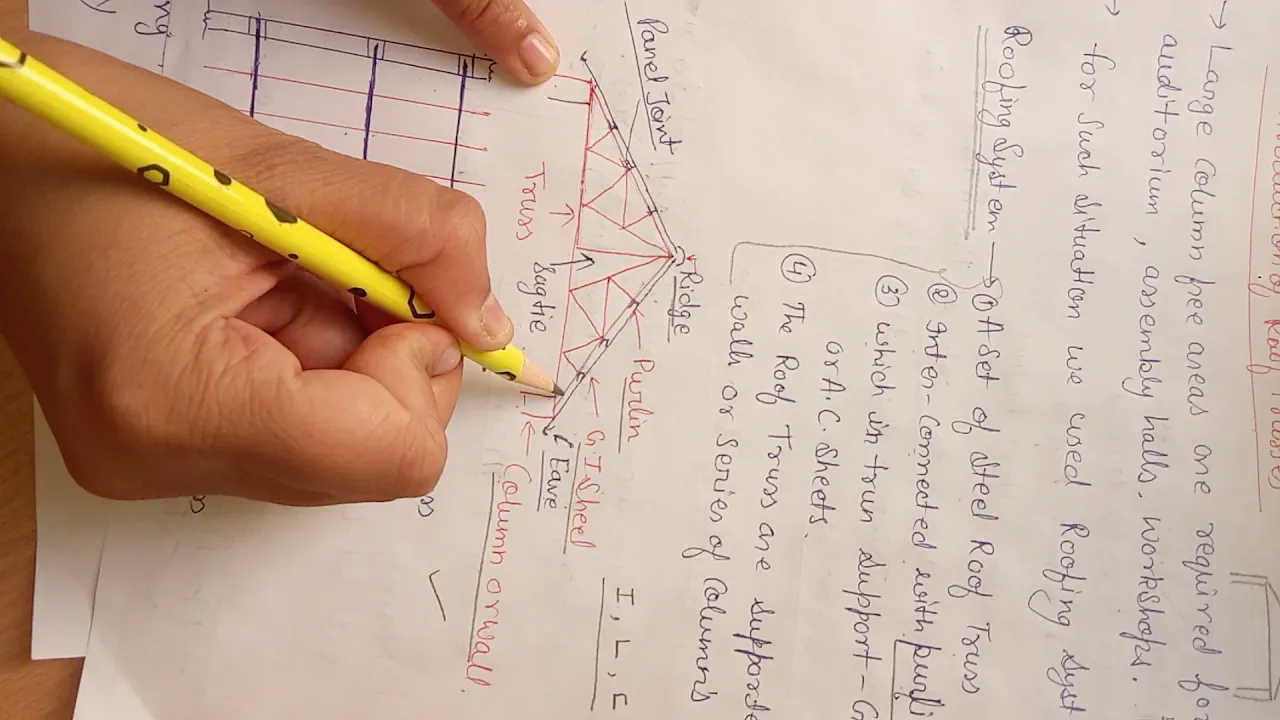 → Large Column free areas are required for
auditorium, assembly halls, workshops.
→ for such situation we used Roofing Syst
Roofing System → ① A Set of Steel Roof Truss
② Inter-Connected with purli
③ which in trun Support - G
or A.C. Sheets.
④ The Roof Truss are supporte
walls or Series of Columns
Ridge
Panel Joint
Purlin
G.I Sheet
I, L, C
Eave
Column or wall.
Truss
Sagtie